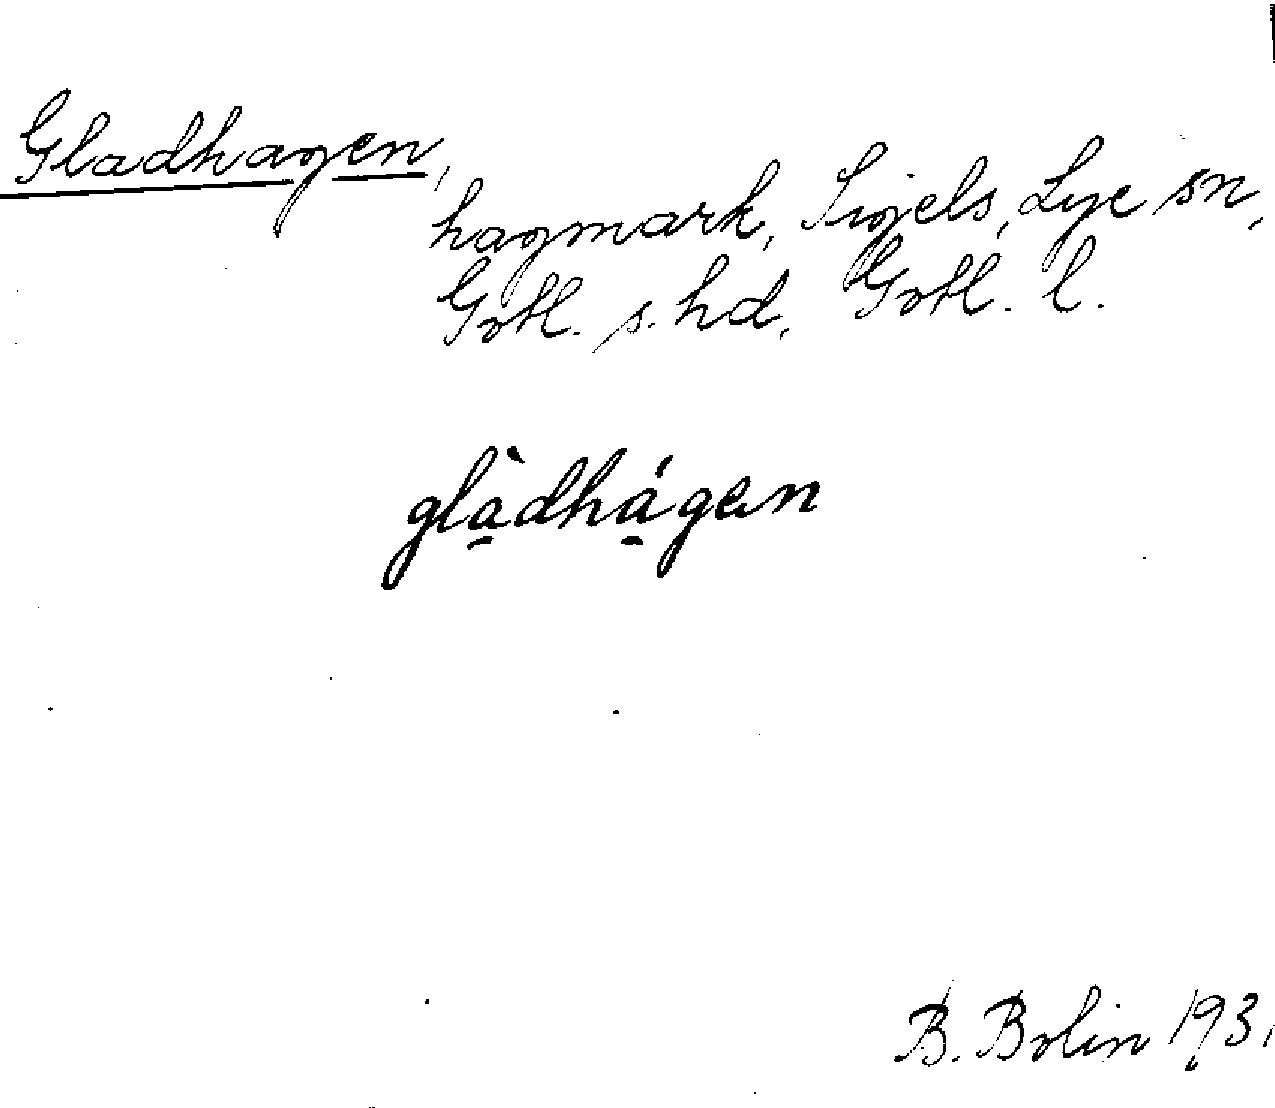 Gladhagen,
hagmark, Sigels, Lye sn,
Gotl. s. hd, Gotl. l.
glàdhágen
B. Bolin 193